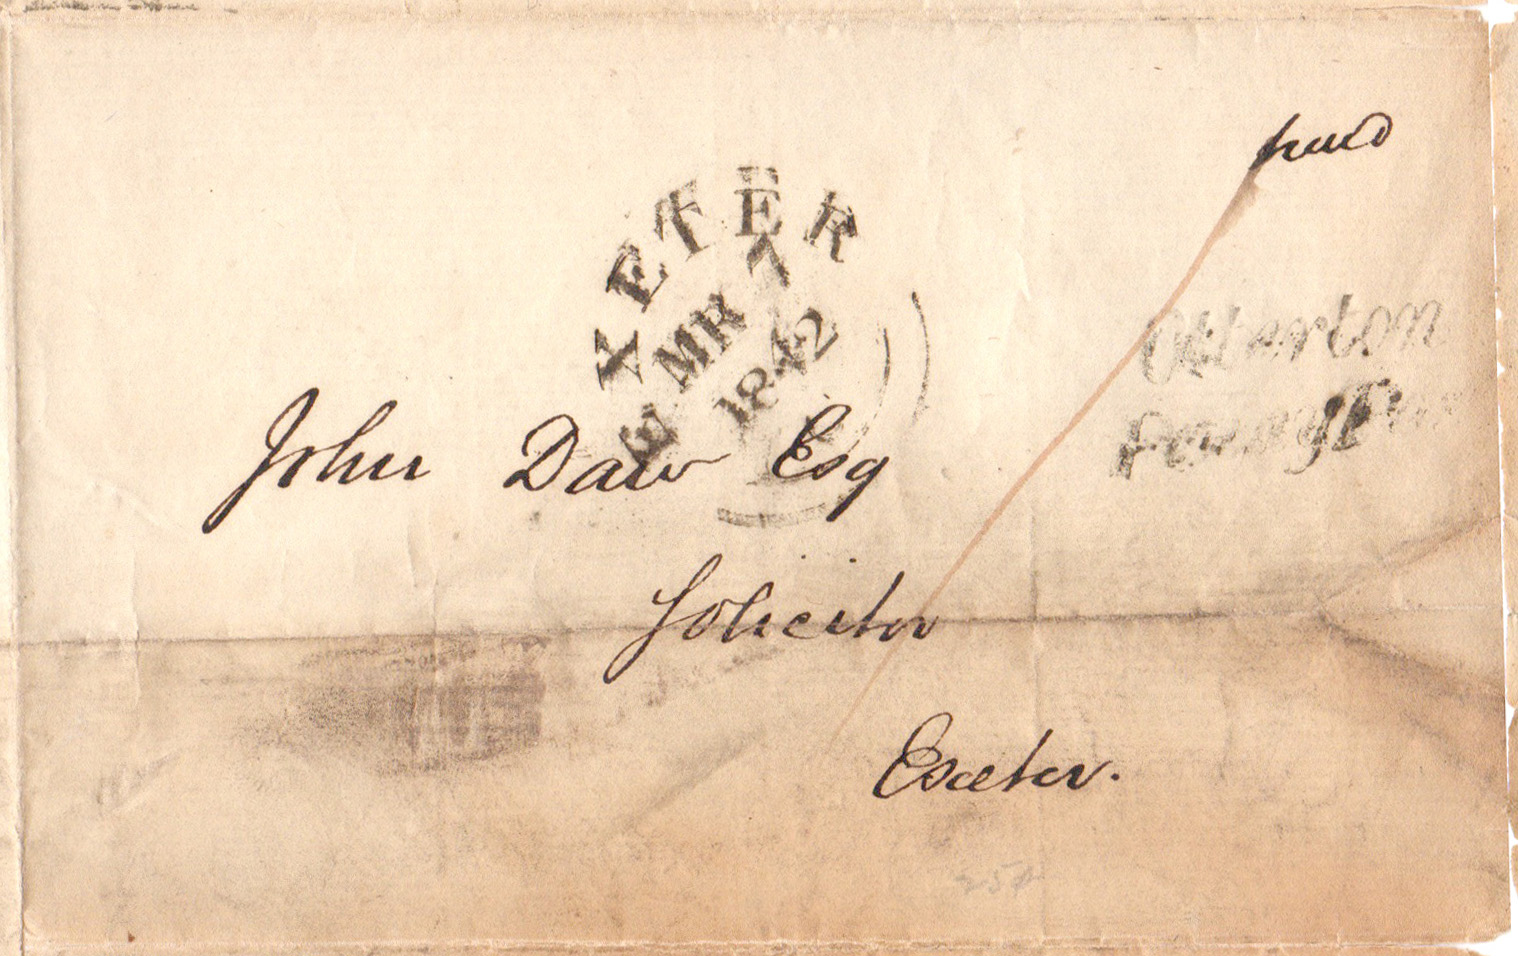 paid
EXETER
MR 7
1842
Otterton
Penny Post
John Daw Esq
Solicitor
Exeter.